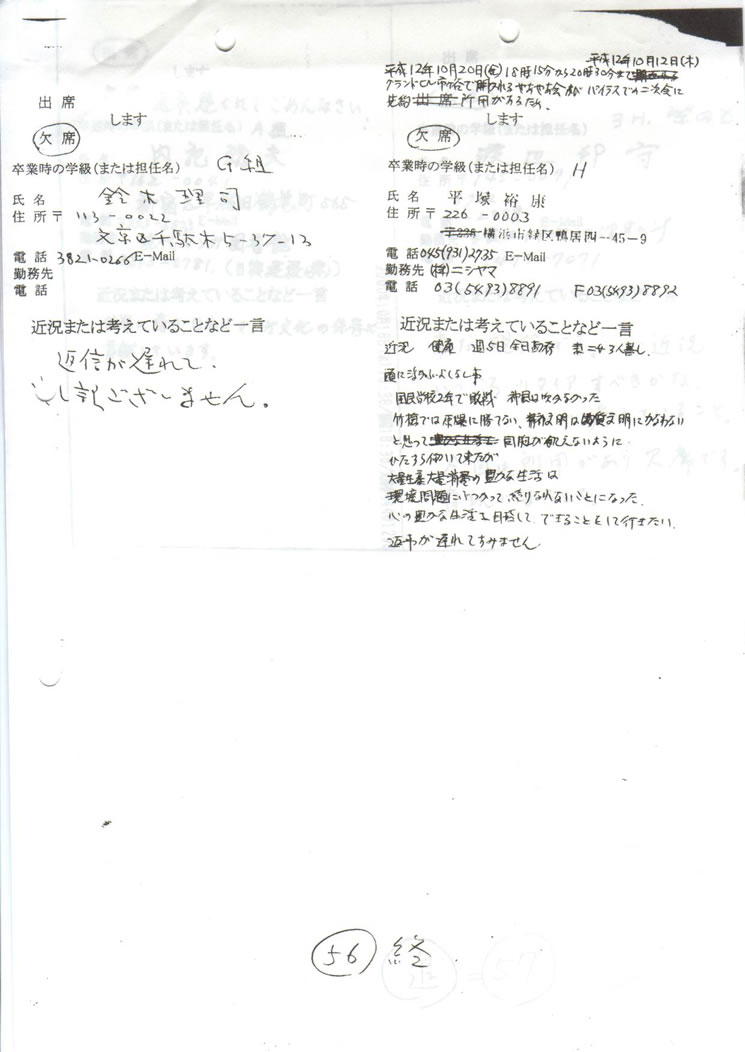 出 席
します
欠 席
卒業時の学級(または担任名) G組
氏 名 鈴木理司
住 所 〒 113-0022
文京区千駄木5-37-13
電 話 3821-0266 E-Mail
勤務先
電 話
近況または考えていることなど一言
返信が遅れて、
申し訳ございません。
平成12年10月12日(木)
平成12年10月20日(金)18時15分から20時30分まで
グランドヒル市ヶ谷で開かれる
先約 所用があるため、
します
欠 席
卒業時の学級(または担任名) H
氏 名 平塚裕康
住 所 〒 226-0003
横浜市緑区鴨居四-45-9
電 話 045(931)2735 E-Mail
勤務先 (株)ニシヤマ
電 話 03(5493)8891 F03(5493)8892
近況または考えていることなど一言
近況 健康 週5日全日勤務 妻と 3人暮し
国民学校2年で敗戦 神風は吹かなかった
竹槍では原爆に勝てない、 文明は物質文明にかなわない
と思って 同胞が飢えないように
ひたすら働いて来たが
大量生産大量消費の豊かな生活は
環境問題にぶつかって
心の豊かな生活を目指して、できることをして行きたい、
返事が遅れてすみません
56 終